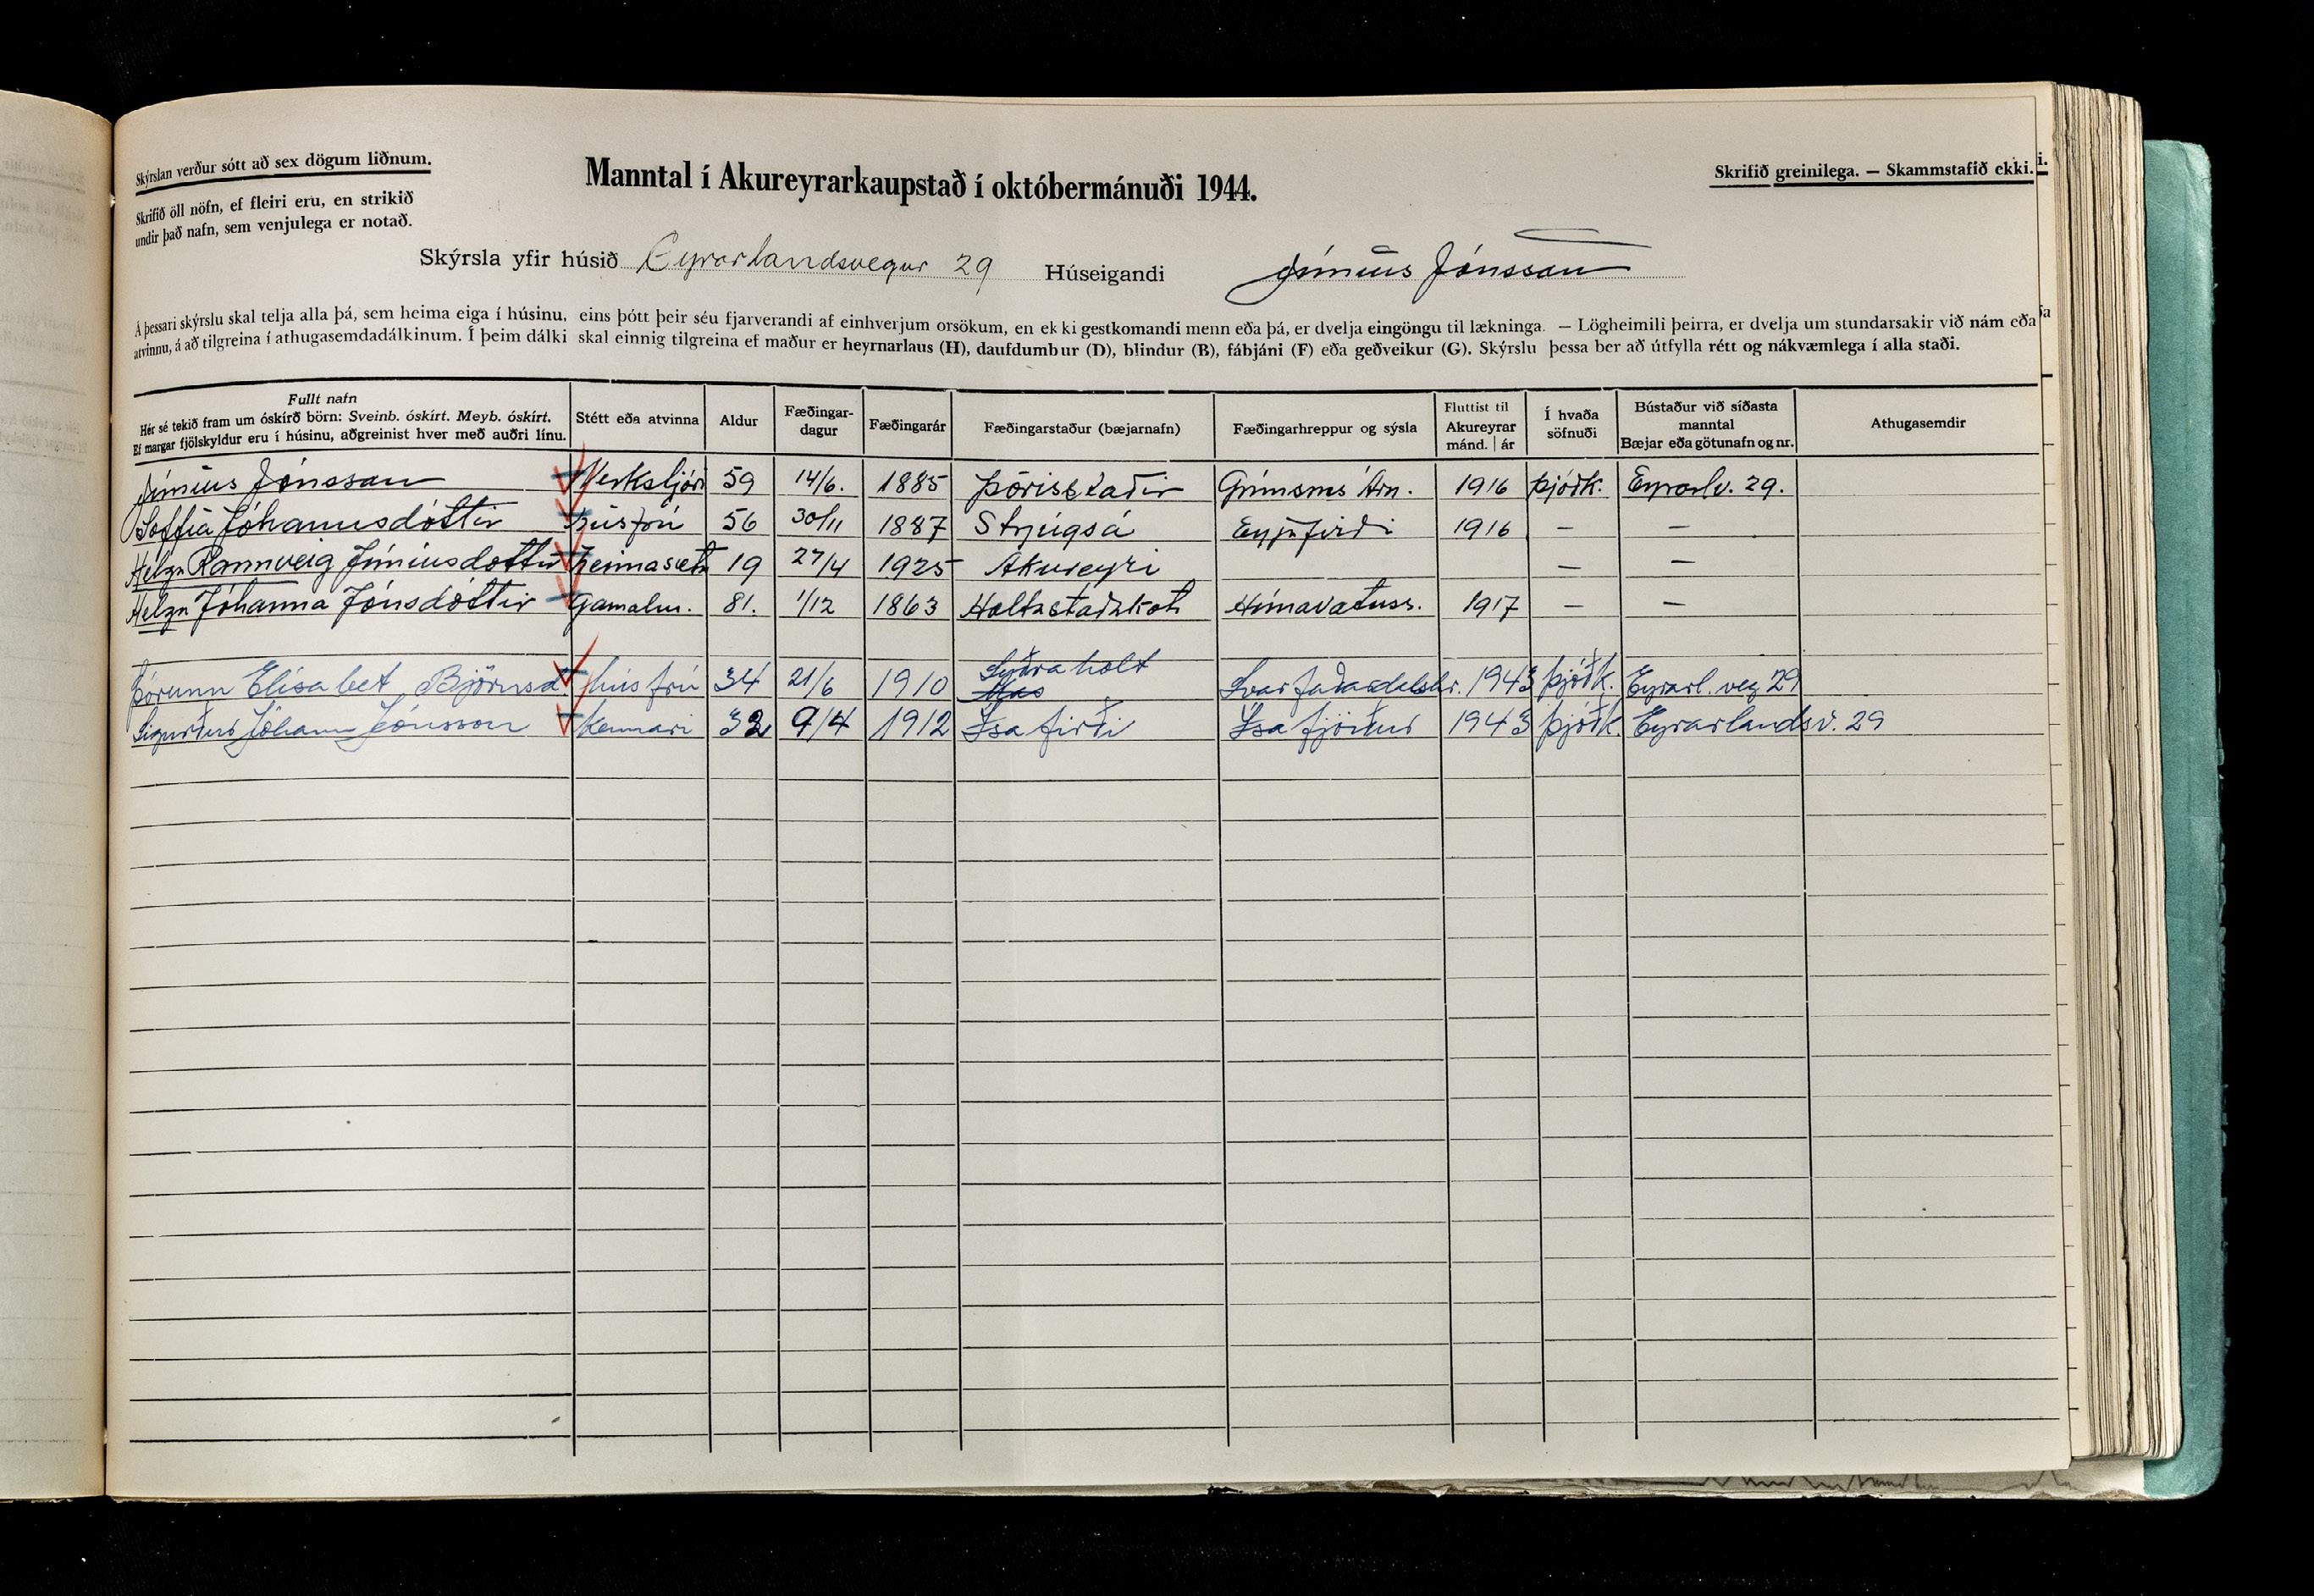 Skýrslan verður sótt að sex dögum liðnum.
Skrifið öll nöfn, ef fleiri eru, en strikið
undir það nafn, sem venjulega er notað.
Manntal í Akureyrarkaupstað í októbermánuði 1944.
Skrifið greinilega. — Skammstafið ekki.
Skýrsla yfir húsið Eyrarlandsvegur 29 Húseigandi Júníus Jónsson
Á þessari skýrslu skal telja alla þá, sem heima eiga í húsinu, eins þótt þeir séu fjarverandi af einhverjum orsökum, en ekki gestkomandi menn eða þá, er dvelja eingöngu til lækninga. — Lögheimili þeirra, er dvelja um stundarsakir við nám eða
atvinnu, á að tilgreina í athugasemdadálkinum. Í þeim dálki skal einnig tilgreina ef maður er heyrnarlaus (H), daufdumbur (D), blindur (B), fábjáni (F) eða geðveikur (G). Skýrslu þessa ber að útfylla rétt og nákvæmlega í alla staði.
Fullt nafn
Hér sé tekið fram um óskírð börn: Sveinb. óskírt. Meyb. óskírt.
Ef margar fjölskyldur eru í húsinu, aðgreinist hver með auðri línu.
Stétt eða atvinna
Aldur
Fæðingar-
dagur
Fæðingarár
Fæðingarstaður (bæjarnafn)
Fæðingarhreppur og sýsla
Fluttist til
Akureyrar
mánd. | ár
Í hvaða
söfnuði
Bústaður við síðasta
manntal
Bæjar eða götunafn og nr.
Athugasemdir
Júníus Jónsson Verkstjóri 59 14/6. 1885 Þórisstaðir Grímsnes Árn. 1916 Þjóðk. Eyrarlv. 29.
Soffía Jóhannesdóttir húsfrú 56 30/11 1887 Strjúgsá Eyjafirði 1916 — —
Helga Rannveig Júníusdóttir heimasæta 19 27/4 1925 Akureyri — —
Helga Jóhanna Jónsdóttir Gamalm. 81. 1/12 1863 Holtastaðakot Húnavatnss. 1917 — —
Þórunn Elísabet Björnsd. húsfrú 34 21/6 1910 Syðra holt Svarfaðardalshr. 1943 Þjóðk. Eyrarl. veg 29
Sigurður Jóhann Jónsson Kennari 32 9/4 1912 Ísafirði Ísafjörður 1943 Þjóðk. Eyrarlandsv. 29